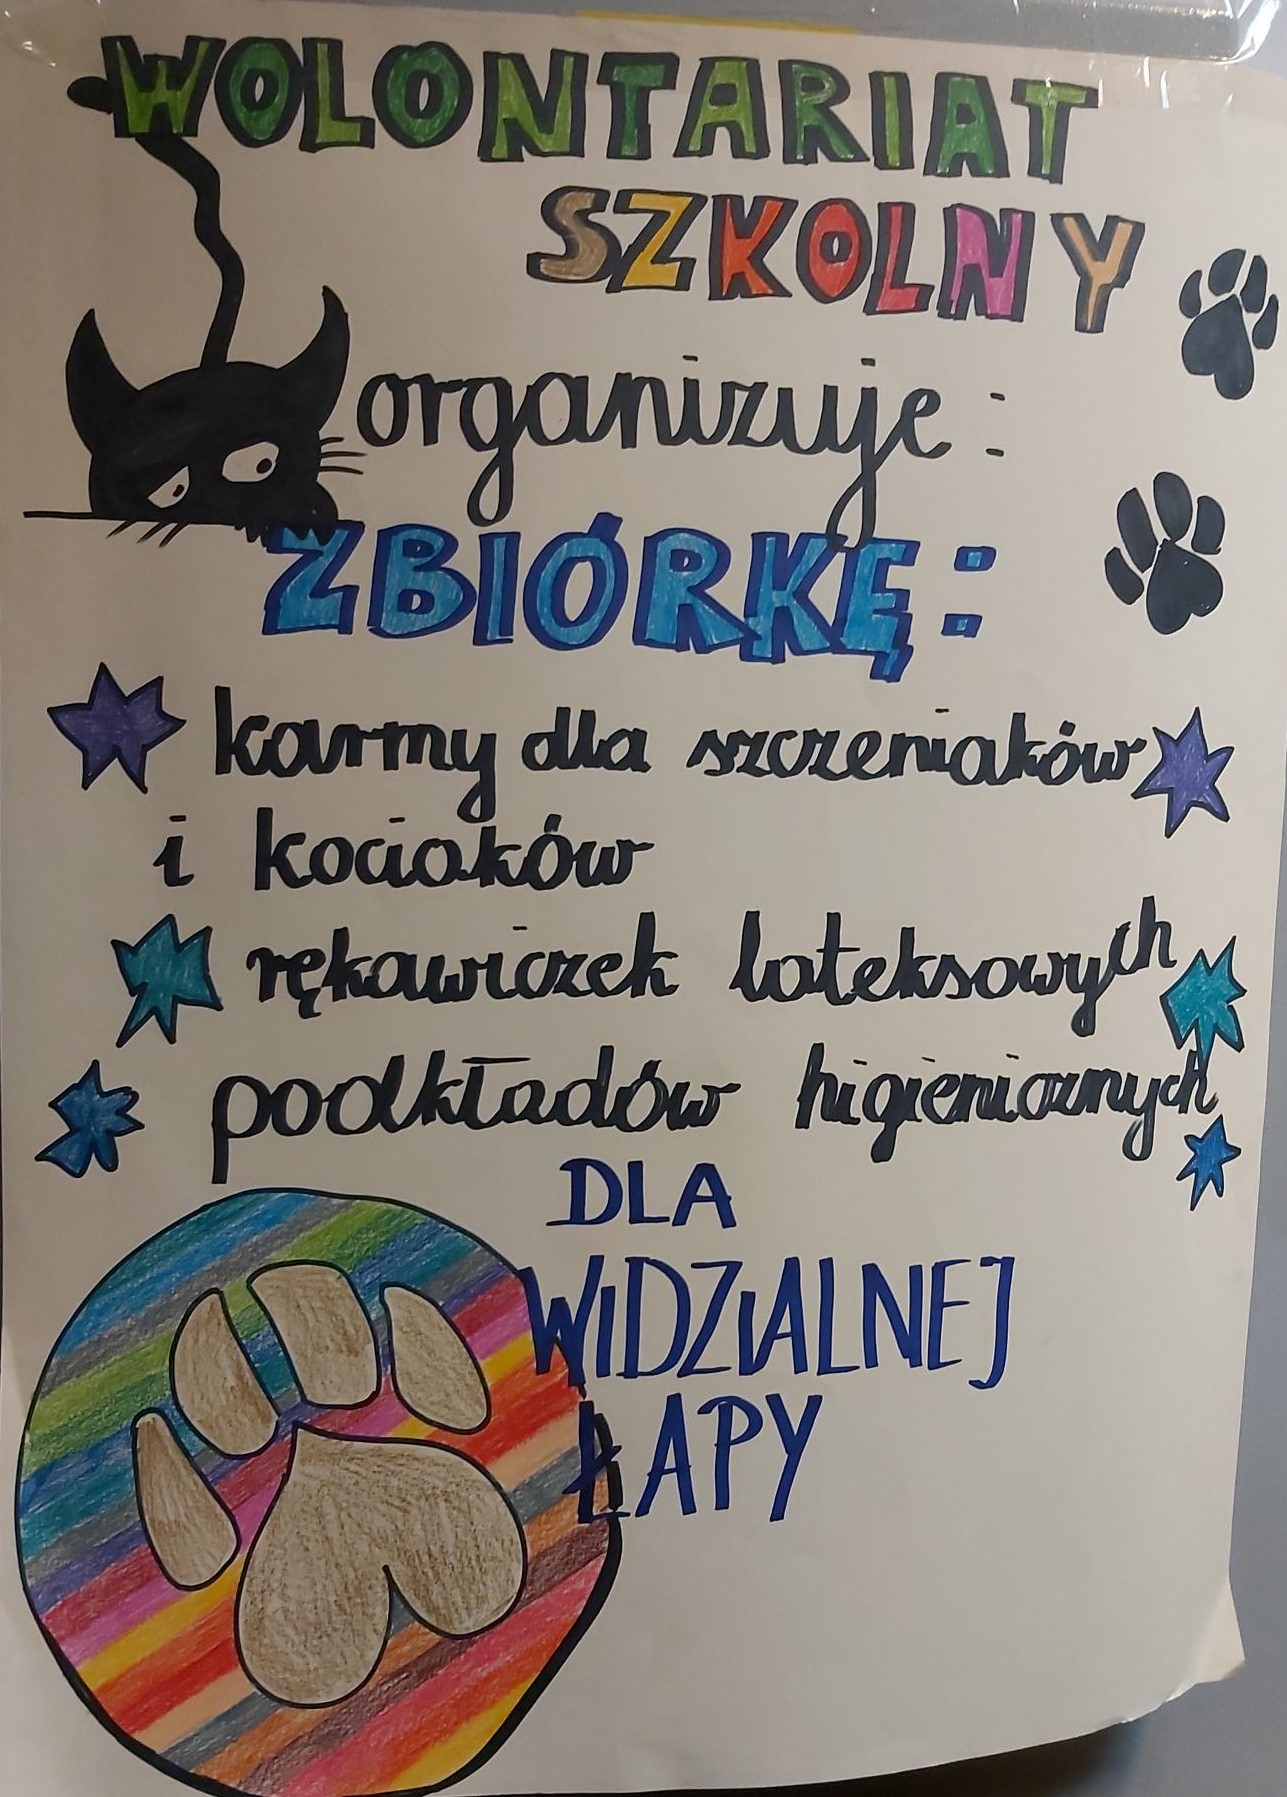 WOLONTARIAT
SZKOLNY
organizuje:
ZBIÓRKĘ:
karmy dla szczeniaków
i kociaków
rękawiczek lateksowych
podkładów higienicznych
DLA
WIDZIALNEJ
ŁAPY